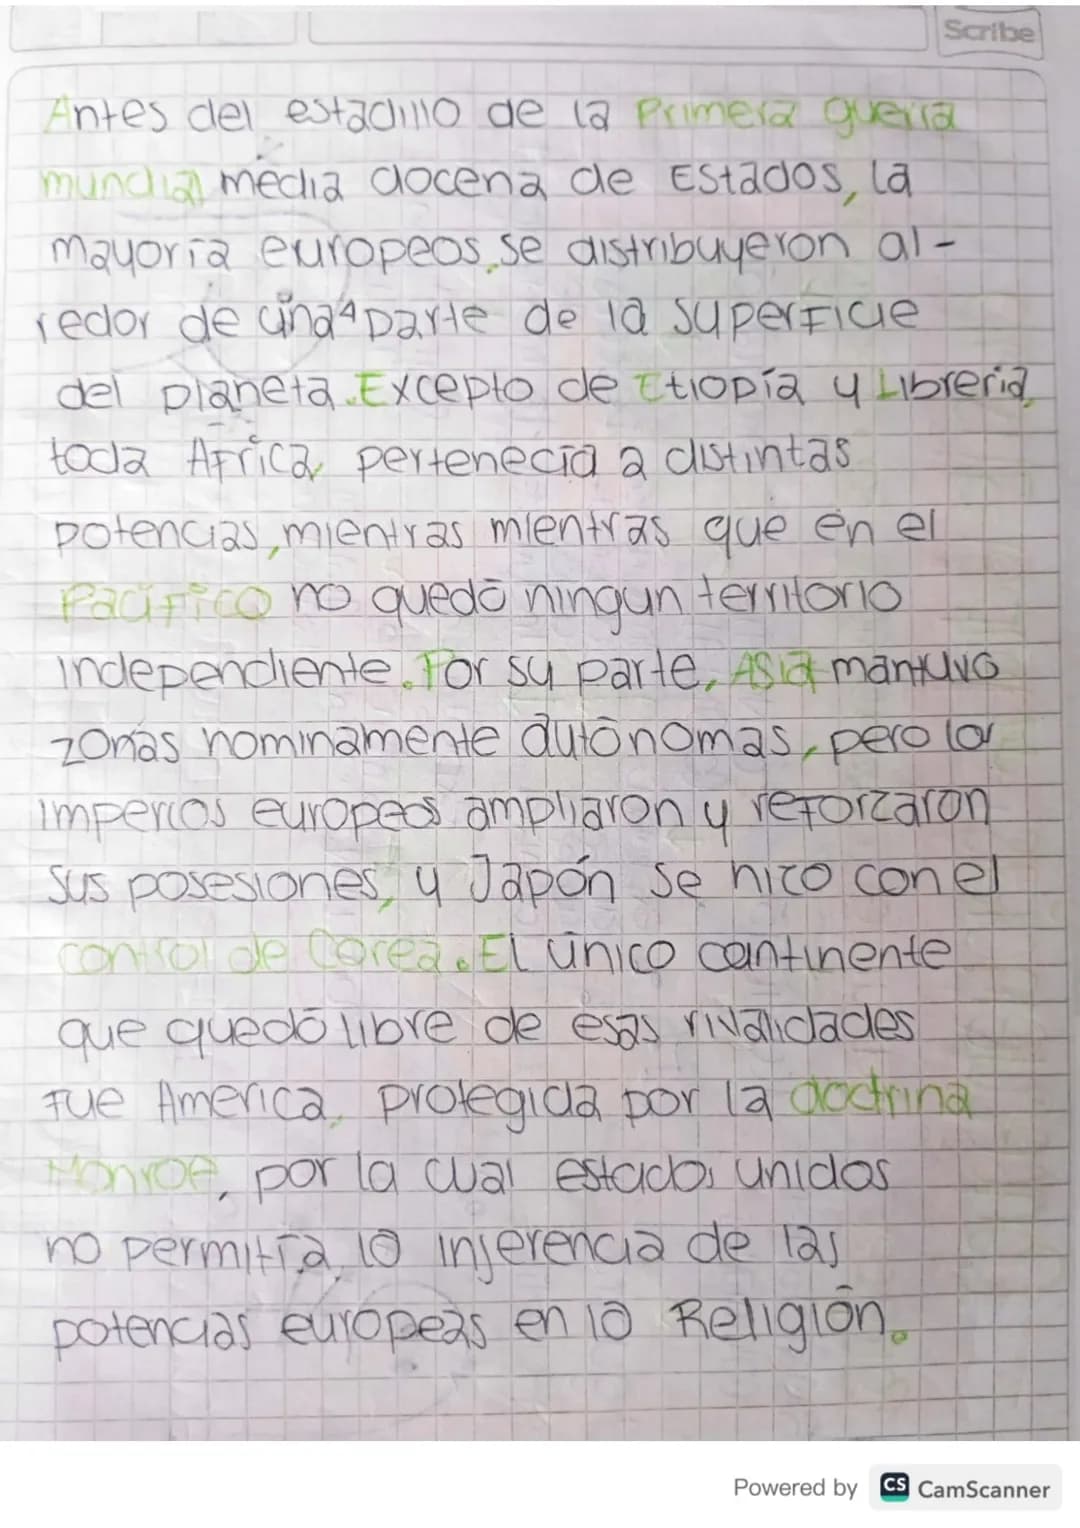 Scribe
Antes del estadillo de la Primera guerra
mundial media docena de Estados, la
mayoría europeos, se distribuyeron al-
redor de una 4 parte de la superficie
del planeta. Excepto de Etiopía y Libreria,
toda África, pertenecía a distintas
potencias, mientras mientras que en el
Pacífico no quedó ningun territorio
independiente. Por su parte, Asia mantuvo
zonas nominamente autónomas, pero los
imperios europeos ampliaron y reforzaron
sus posesiones, y Japón se hizo con el
control de Corea. El único continente
que quedó libre de esas rivalidades
fue America, protegida por la doctrina
Monroe, por la cual estados unidos
no permitía lo injerencia de las
potencias europeas en lo Religión.
Powered by CS CamScanner